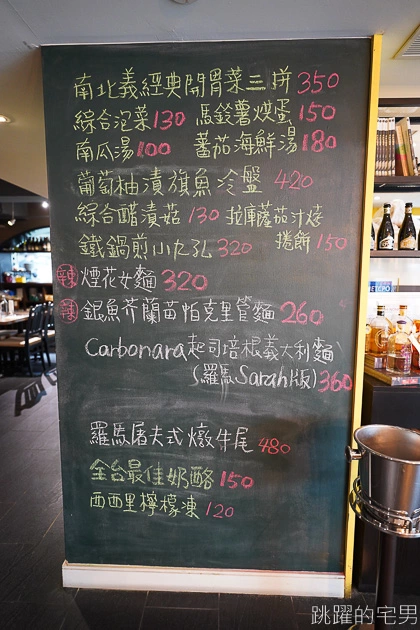 南北義經典開胃菜三拼 350
綜合泡菜 130 馬鈴薯烘蛋 150
南瓜湯 100 蕃茄海鮮湯 180
葡萄柚漬旗魚冷盤 420
綜合醋漬菇 130 拉庫蕃茄汁烤
捲餅 150
鐵鍋煎小丸孔 320
辣 煙花女麵 320
辣 銀魚芥蘭苗帕克里管麵 260
Carbonara起司培根義大利麵
(羅馬Sarah版) 360
羅馬屠夫式燉牛尾 480
全台最佳奶酪 150
西西里檸檬凍 120
跳躍的宅男